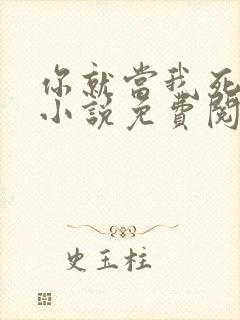 你就當我死
小說免費閱
史玉柱